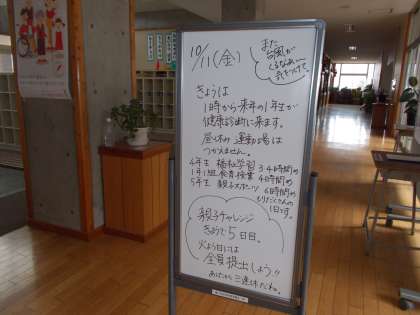 10/11(金)
また
台風が
くるなあ…
気をつけて。
きょうは
1時から来年の1年生が
健康診断に来ます。
昼休の運動場は
つかえません。
4年生 福祉学習 3・4時間め
1年1組 教育授業 4時間め
5年生 親子スポーツ 6時間め
もりだくさんの
1日です。
親子チャレンジ
きょうで5日目。
火よう日には
全員提出しよう!!
あしたから三連休だね。